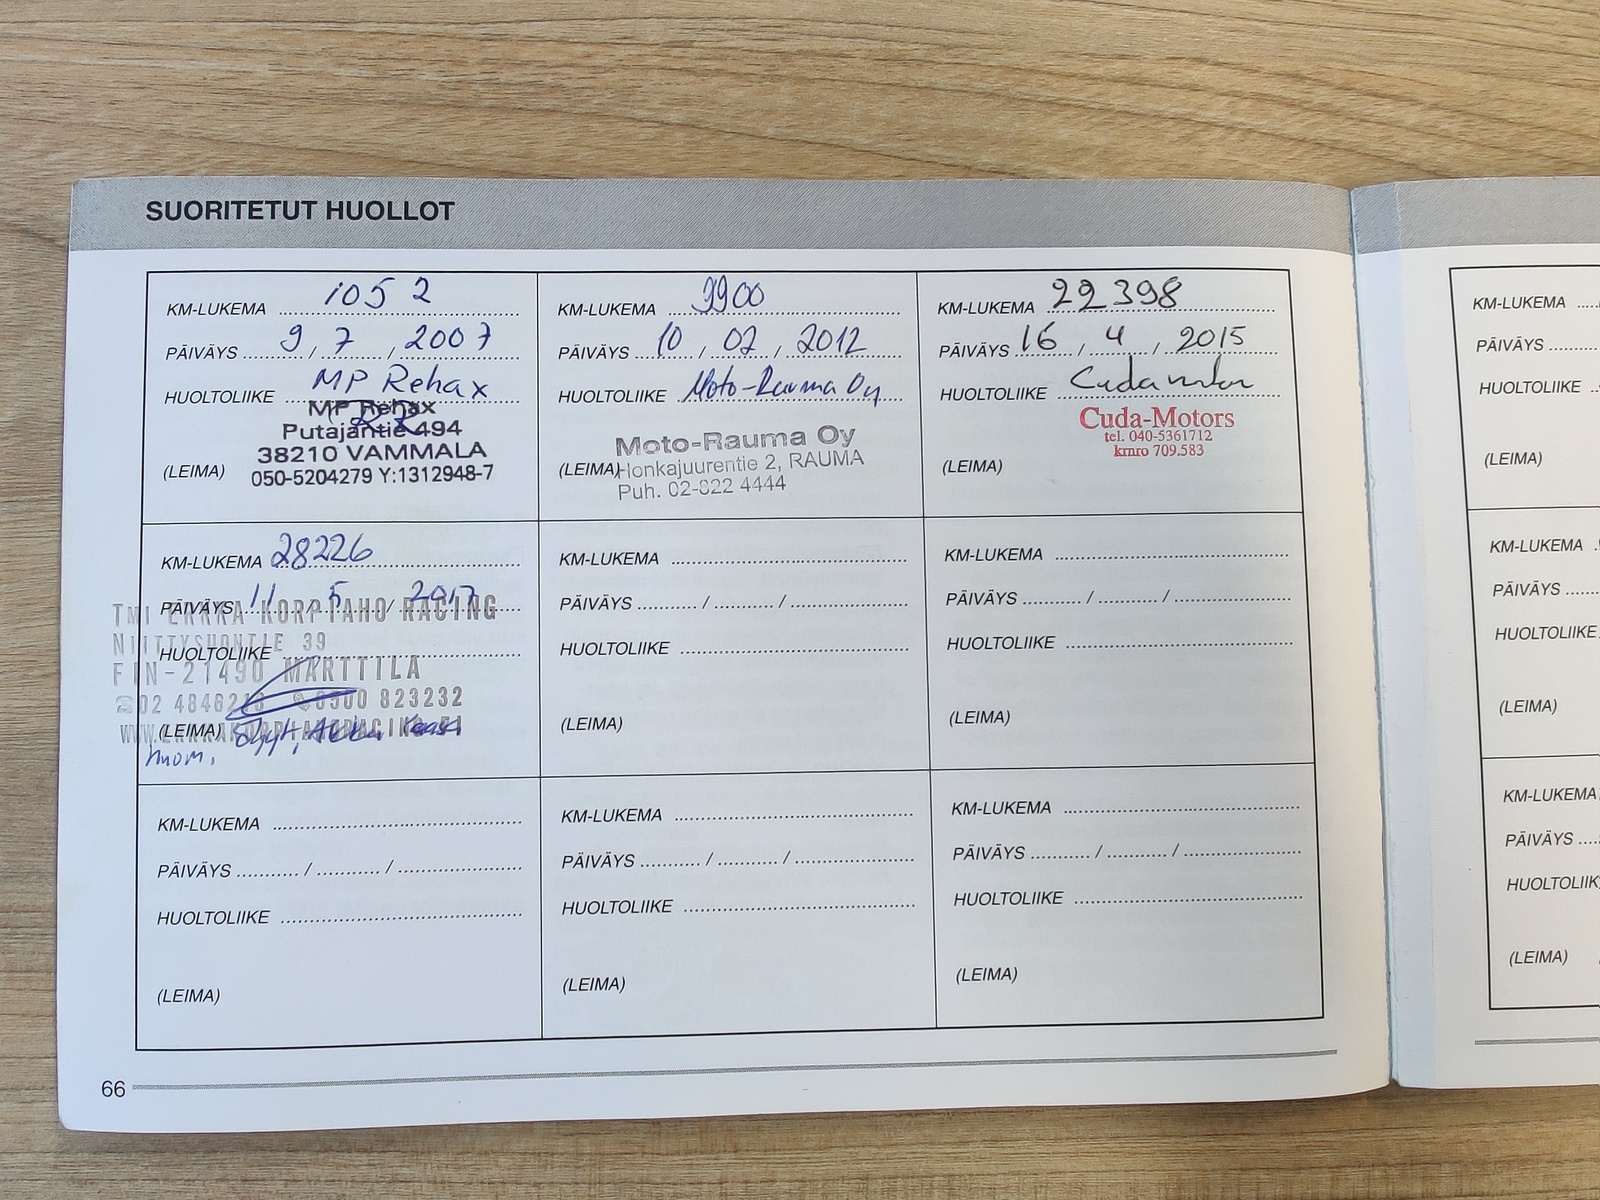 SUORITETUT HUOLLOT
KM-LUKEMA 1052
PÄIVÄYS 9 / 7 / 2007
HUOLTOLIIKE MP Rehax
MP Rehax
Putajantie 494
38210 VAMMALA
(LEIMA) 050-5204279 Y:1312948-7
KM-LUKEMA 9900
PÄIVÄYS 10 / 02 / 2012
HUOLTOLIIKE Moto-Rauma Oy
Moto-Rauma Oy
(LEIMA) Honkajuurentie 2, RAUMA
Puh. 02-822 4444
KM-LUKEMA 22398
PÄIVÄYS 16 / 4 / 2015
HUOLTOLIIKE
Cuda-Motors
tel. 040-5361712
kmro 709.583
(LEIMA)
KM-LUKEMA 28226
PÄIVÄYS 11 / 5 / 2017
TMI ERKKA KORPIAHO RACING
39
HUOLTOLIIKE
FIN-21490 MARTTILA
0500 823232
(LEIMA)
huom.
KM-LUKEMA
PÄIVÄYS / /
HUOLTOLIIKE
(LEIMA)
KM-LUKEMA
PÄIVÄYS / /
HUOLTOLIIKE
(LEIMA)
KM-LUKEMA
PÄIVÄYS / /
HUOLTOLIIKE
(LEIMA)
KM-LUKEMA
PÄIVÄYS / /
HUOLTOLIIKE
(LEIMA)
KM-LUKEMA
PÄIVÄYS / /
HUOLTOLIIKE
(LEIMA)
66
KM-LUKEMA
PÄIVÄYS
HUOLTOLIIKE
(LEIMA)
KM-LUKEMA
PÄIVÄYS
HUOLTOLIIKE
(LEIMA)
KM-LUKEMA
PÄIVÄYS
HUOLTOLIIK
(LEIMA)